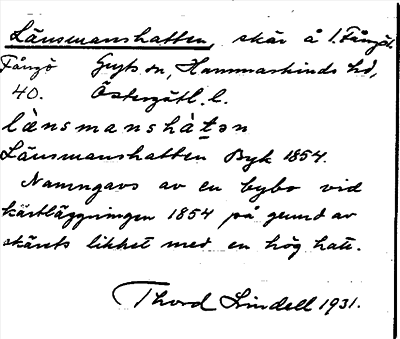 Länsmanshatten, skär å 1. Fångö.
Fångö Gryts sn, Hammarkinds hd,
40. Östergötl. l.
lä̀nsmanshàt̯ən
Länsmanshatten Byk 1854.
Namngavs av en bybo vid
kartläggningen 1854 på grund av
skärets likhet med en hög hatt.
Thord Lindell 1931.